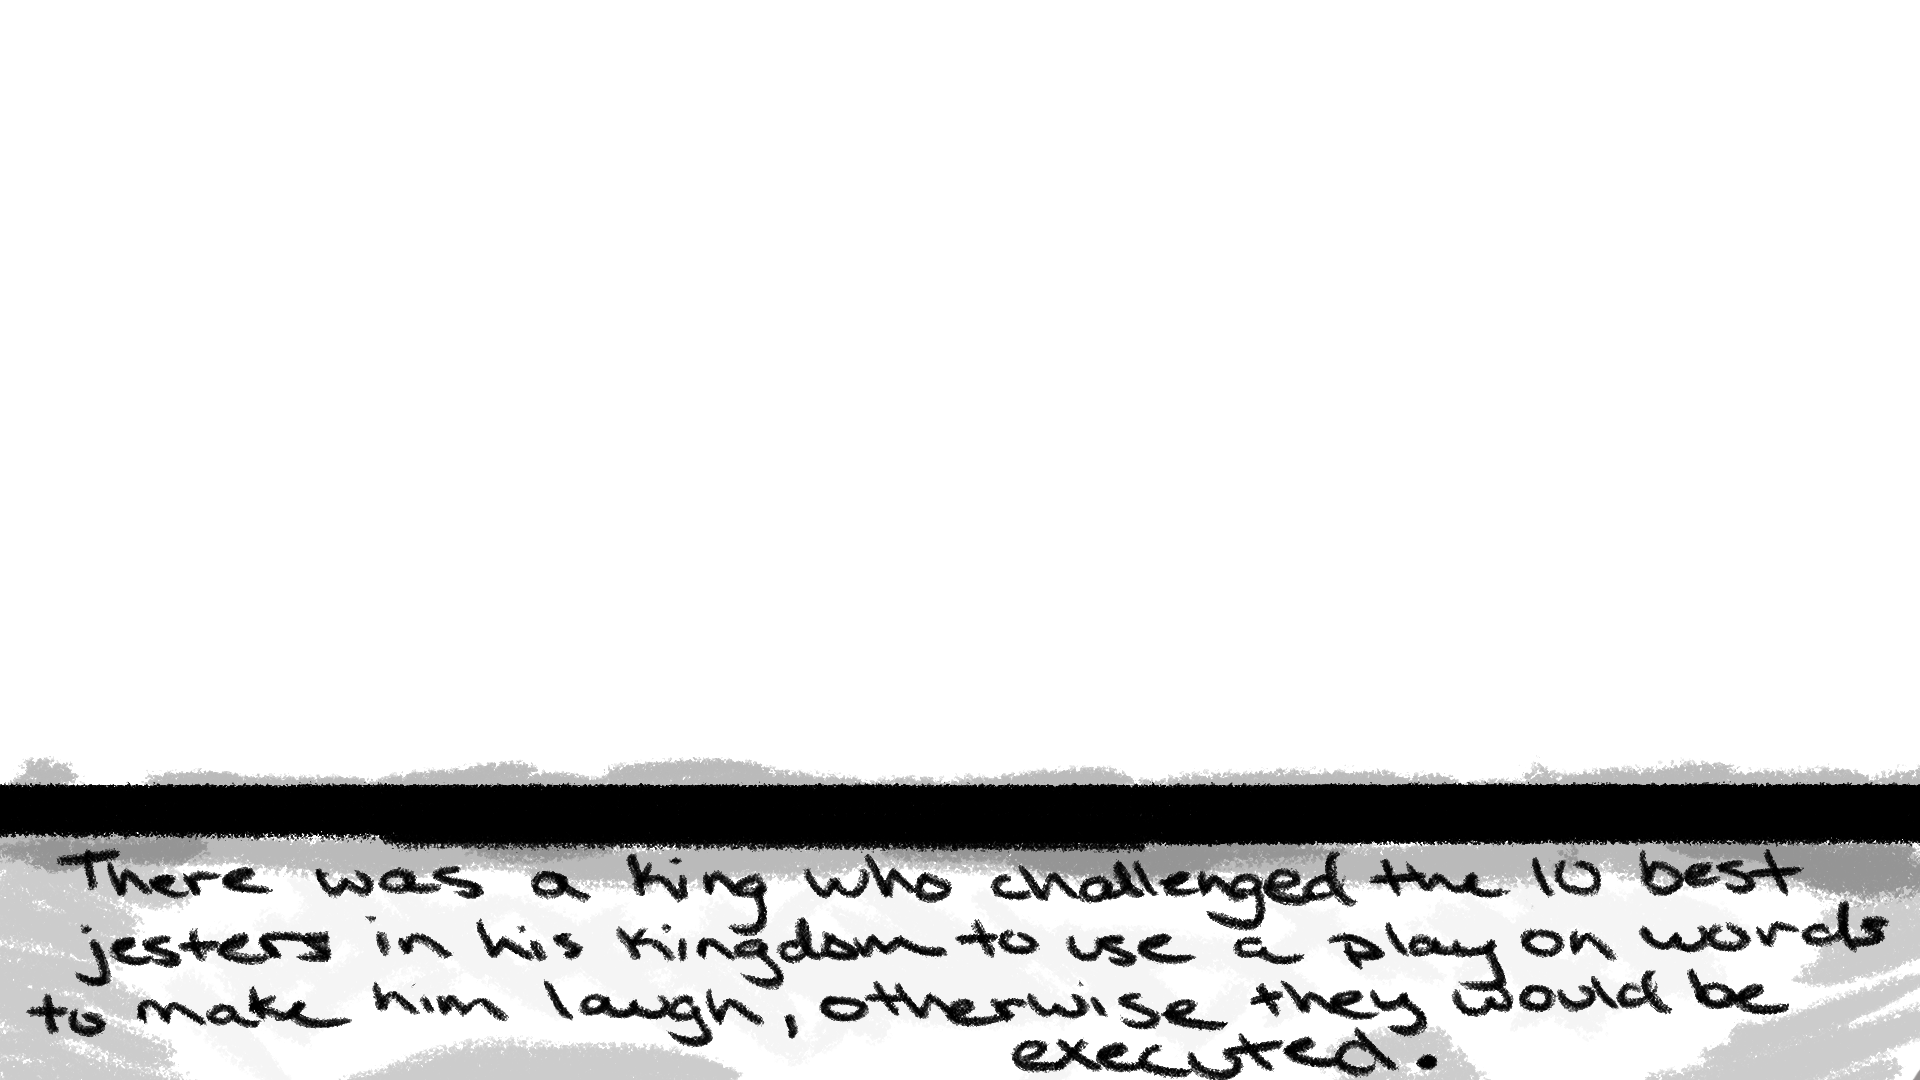 There was a king who challenged the 10 best
jesters in his kingdom to use a play on words
to make him laugh, otherwise they would be
executed.